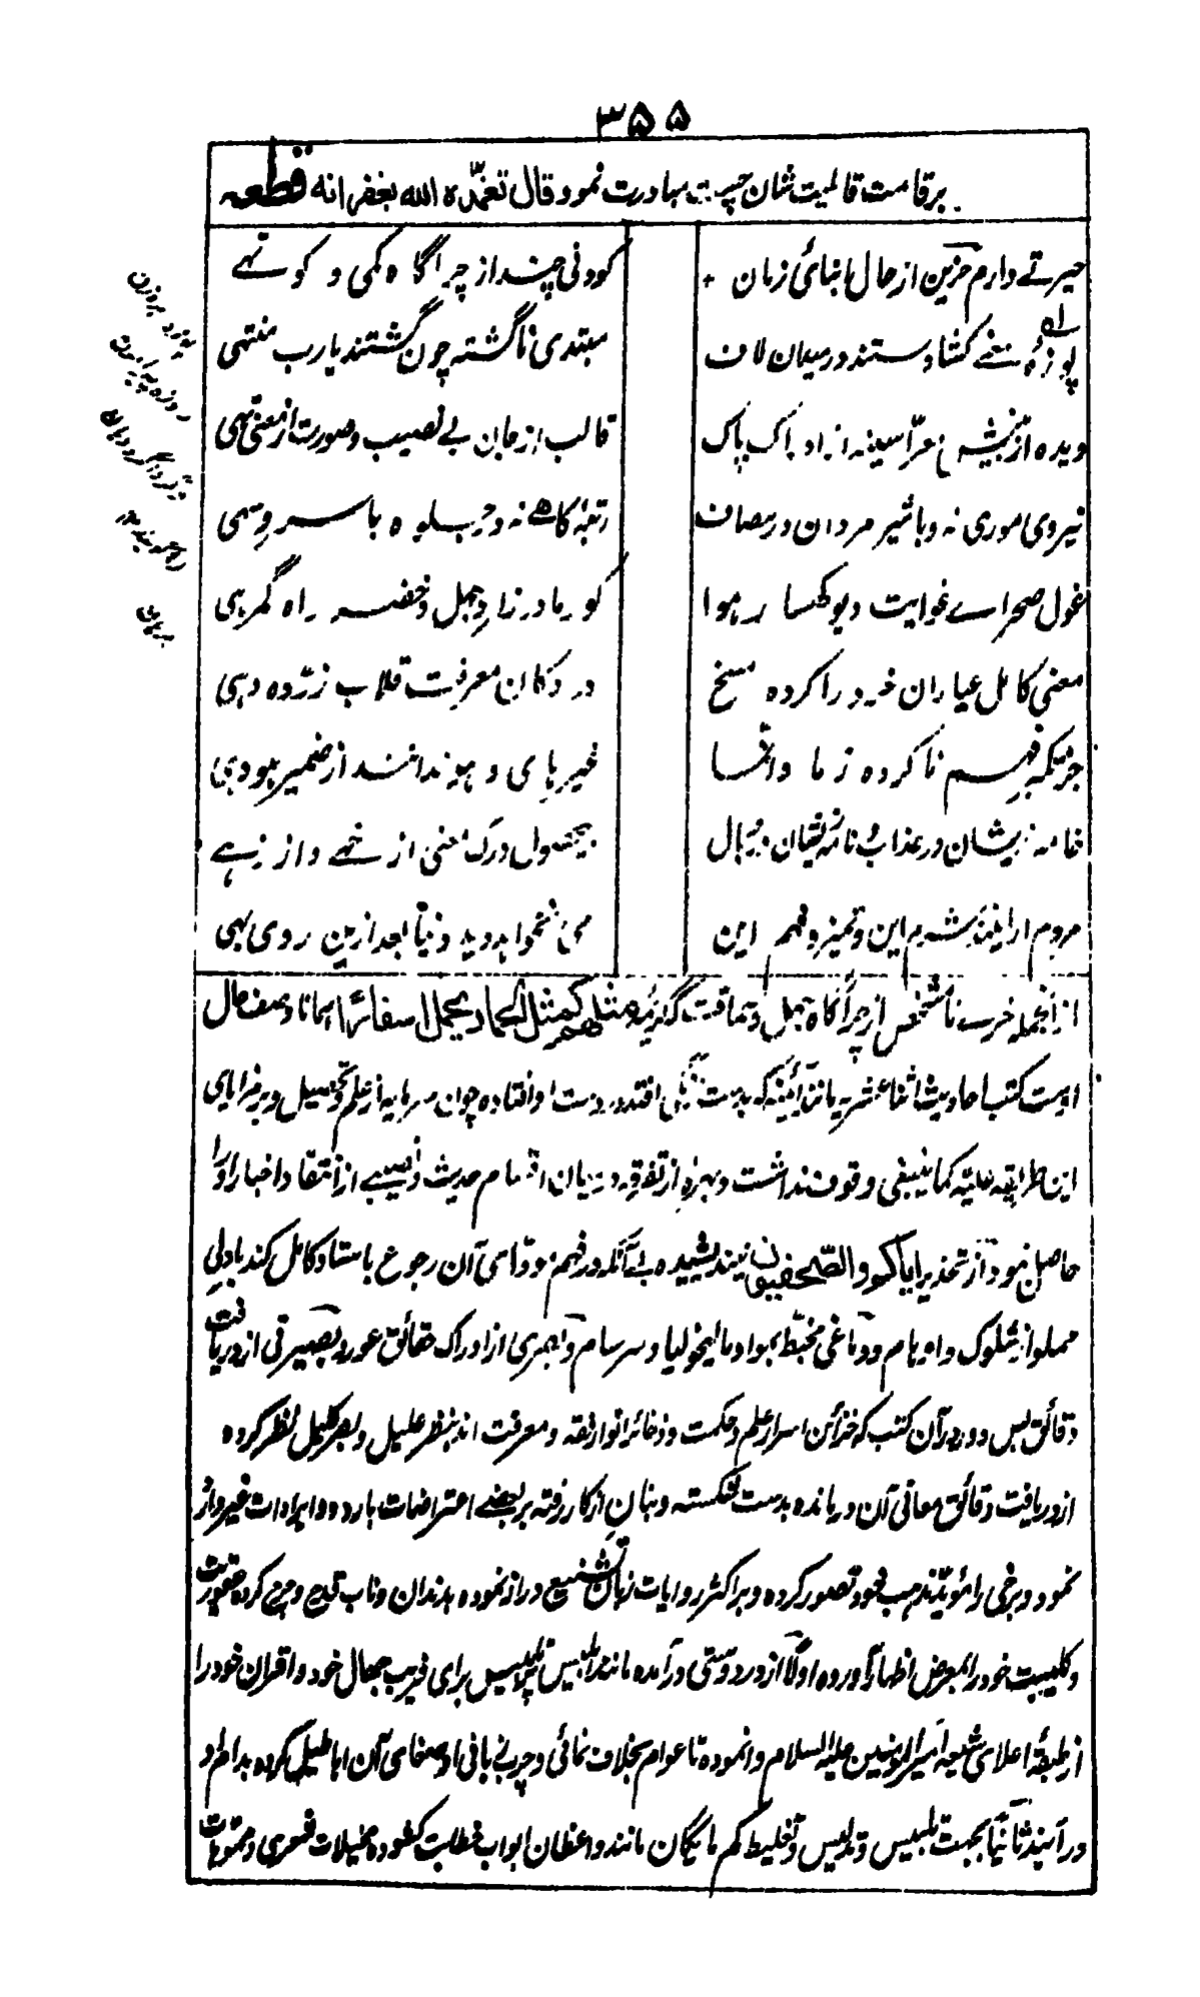 ۳۵۵
بر قامت قالمیت شان چست مبادرت نمود قال تغمّده الله بغفرانه قطعه
حیرتے دارم حزین از حال ابنائی زمان
کودنی چند از چراگاه کمی و کوتهے
پوزهٔ سنے کشادستند در میدان لاف
مبتدی ناگشته چون گشتند یارب منتهی
دیده از بینش معرّا سینه از ادراک پاک
قالب از جان بے نصیب و صورت از معنی تهی
نیروی موری نه و با شیر مردان در مصاف
رتبهٔ کاهے نه و در جلوه با سرو سهی
غول صحراے غوایت دیو کهسار هوا
کور مادرزاد جهل و خضر راه گمرهی
معنی کامل عیاران خرد را کرده مسخ
در دکان معرفت قلاب زر ده دهی
جز تیکه فهم ناکرده ز ما و انّما
غیر ہای و ہو ندانند از ضمیر ہو وہی
خامه زیشان در عذاب و نامه زیشان در وبال
بیحصول درک معنی از خہے و از زہے
مردم ار اینند بشرم این و تمیز و فهم این
می نخواهد دید دنیا بعد ازین روی بهی
از انجمله خرسے نامشخص از چراگاه جهل و حماقت گزیده مثلهم کمثل الحمار یحمل اسفارا همانا وصف حال
اوست کتب احادیث اثنا عشریه مانند آئینه که بدست زنگی افتد در دست او افتاده چون سرمایه از علم و تحصیل و بر مزایای
این طریقه علیّه کما ینبغی وقوف نداشت و بهرهٔ از تفرقه درمیان اقسام حدیث و نصیبے از انتقاد اخبار او را
حاصل نبود از تحذیر ایاکم والصّحفیون نیندیشیده بے آنکه در فهم مودّاسی آن رجوع باستاد کامل کند با دلی
مملو از شکوک و اوهام و دماغی مخبّط بمواد مالیخولیا و سرسام و بصری از ادراک حقائق عور و بصیرتی از دریافت
دقائق بس دور در آن کتب که خزائن اسرار علم و حکمت و ذخائر انوار فقه و معرفت اند بنظر علیل و بصر کلیل نظر کرده
از دریافت دقائق معانی آن درمانده بدست شکسته و بنان از کار رفته بر بعضے اعتراضات بارده و ایرادات غیر وارد
نمود و برخی را مؤید مذهب خود تصور کرده و بر اکثر روایات زبان تشنیع دراز نموده بدندان و ناب قدح و جرح کرده عقوریت
و کلبیت خود را بمعرض اظهار آورده اولاً از در دوستی درآمده مانند ابلیس پر تلبیس برای فریب جهال خود و اقران خود را
از طبقهٔ اعلای شیعه امیر المومنین علیه السلام وانموده تا عوام بخلاف نمائی و چرب زبانی او اصغای آن اباطیل کرده بدام او
درآیند ثانیاً بجهت تلبیس و تدلیس و تغلیط کم مایگان مانند واعظان ابواب خطابت کشوده مخیلات شعری و مموّهات